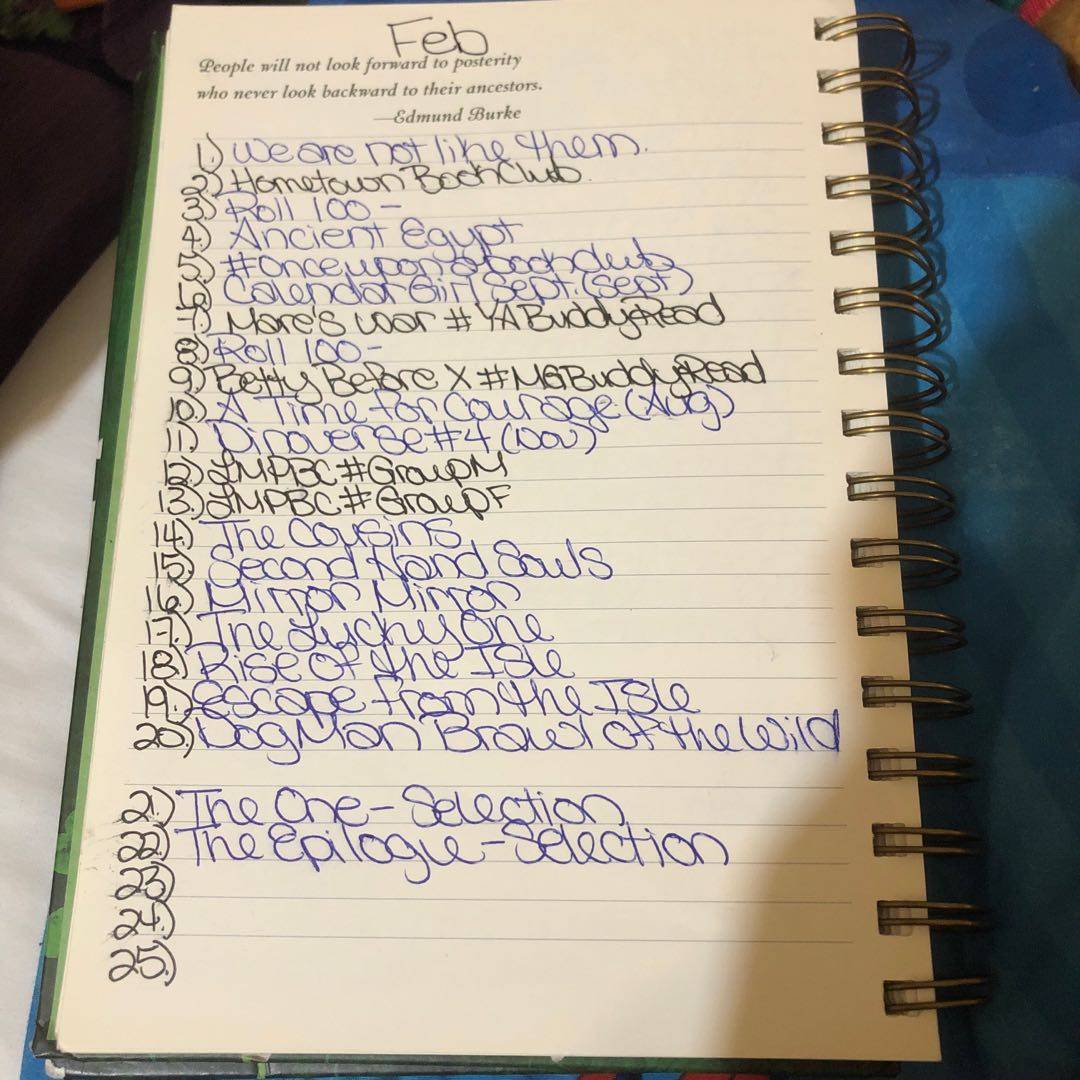 Feb
People will not look forward to posterity
who never look backward to their ancestors.
—Edmund Burke
1.) We are not like them.
2.) Hometown BookClub.
3.) Roll 100 -
4.) Ancient Egypt
5.) #Onceuponabookclub
6.) Calendar Girl Sept. (Sept)
7.) Mare's War #YABuddyRead
8.) Roll 100 -
9.) Betty Before X #MGBuddyRead
10.) A Time for Courage (Aug)
11.) Dinoverse #4 (Nov)
12.) LMPBC #GroupM
13.) LMPBC #GroupF
14.) The Cousins
15.) Second Hand Souls
16.) Mirror Mirror
17.) The Lucky One
18.) Rise of the Isle
19.) Escape from the Isle
20.) Dog Man Brawl of the Wild
21.) The One - Selection
22.) The Epilogue - Selection
23.)
24.)
25.)